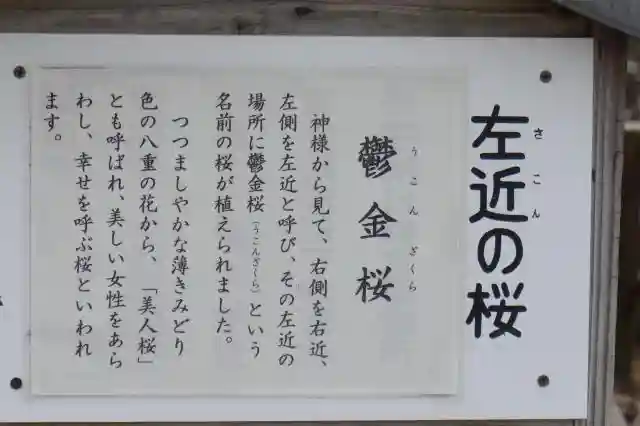 左近の桜
さこん
鬱金桜
うこんざくら
神様から見て、右側を右近、
左側を左近と呼び、その左近の
場所に鬱金桜（うこんざくら）という
名前の桜が植えられました。
つつましやかな薄きみどり
色の八重の花から、「美人桜」
とも呼ばれ、美しい女性をあら
わし、幸せを呼ぶ桜といわれ
ます。